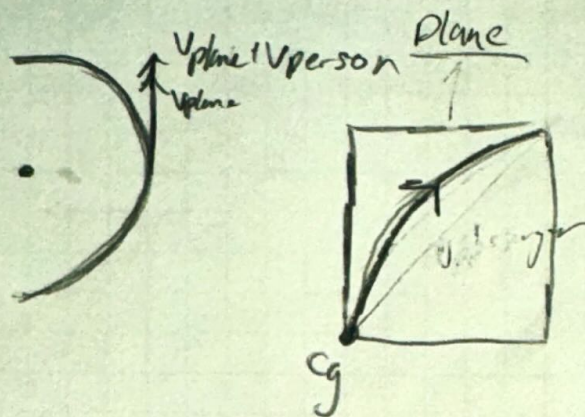 Vplane+Vperson
Vplane
Plane
Cg